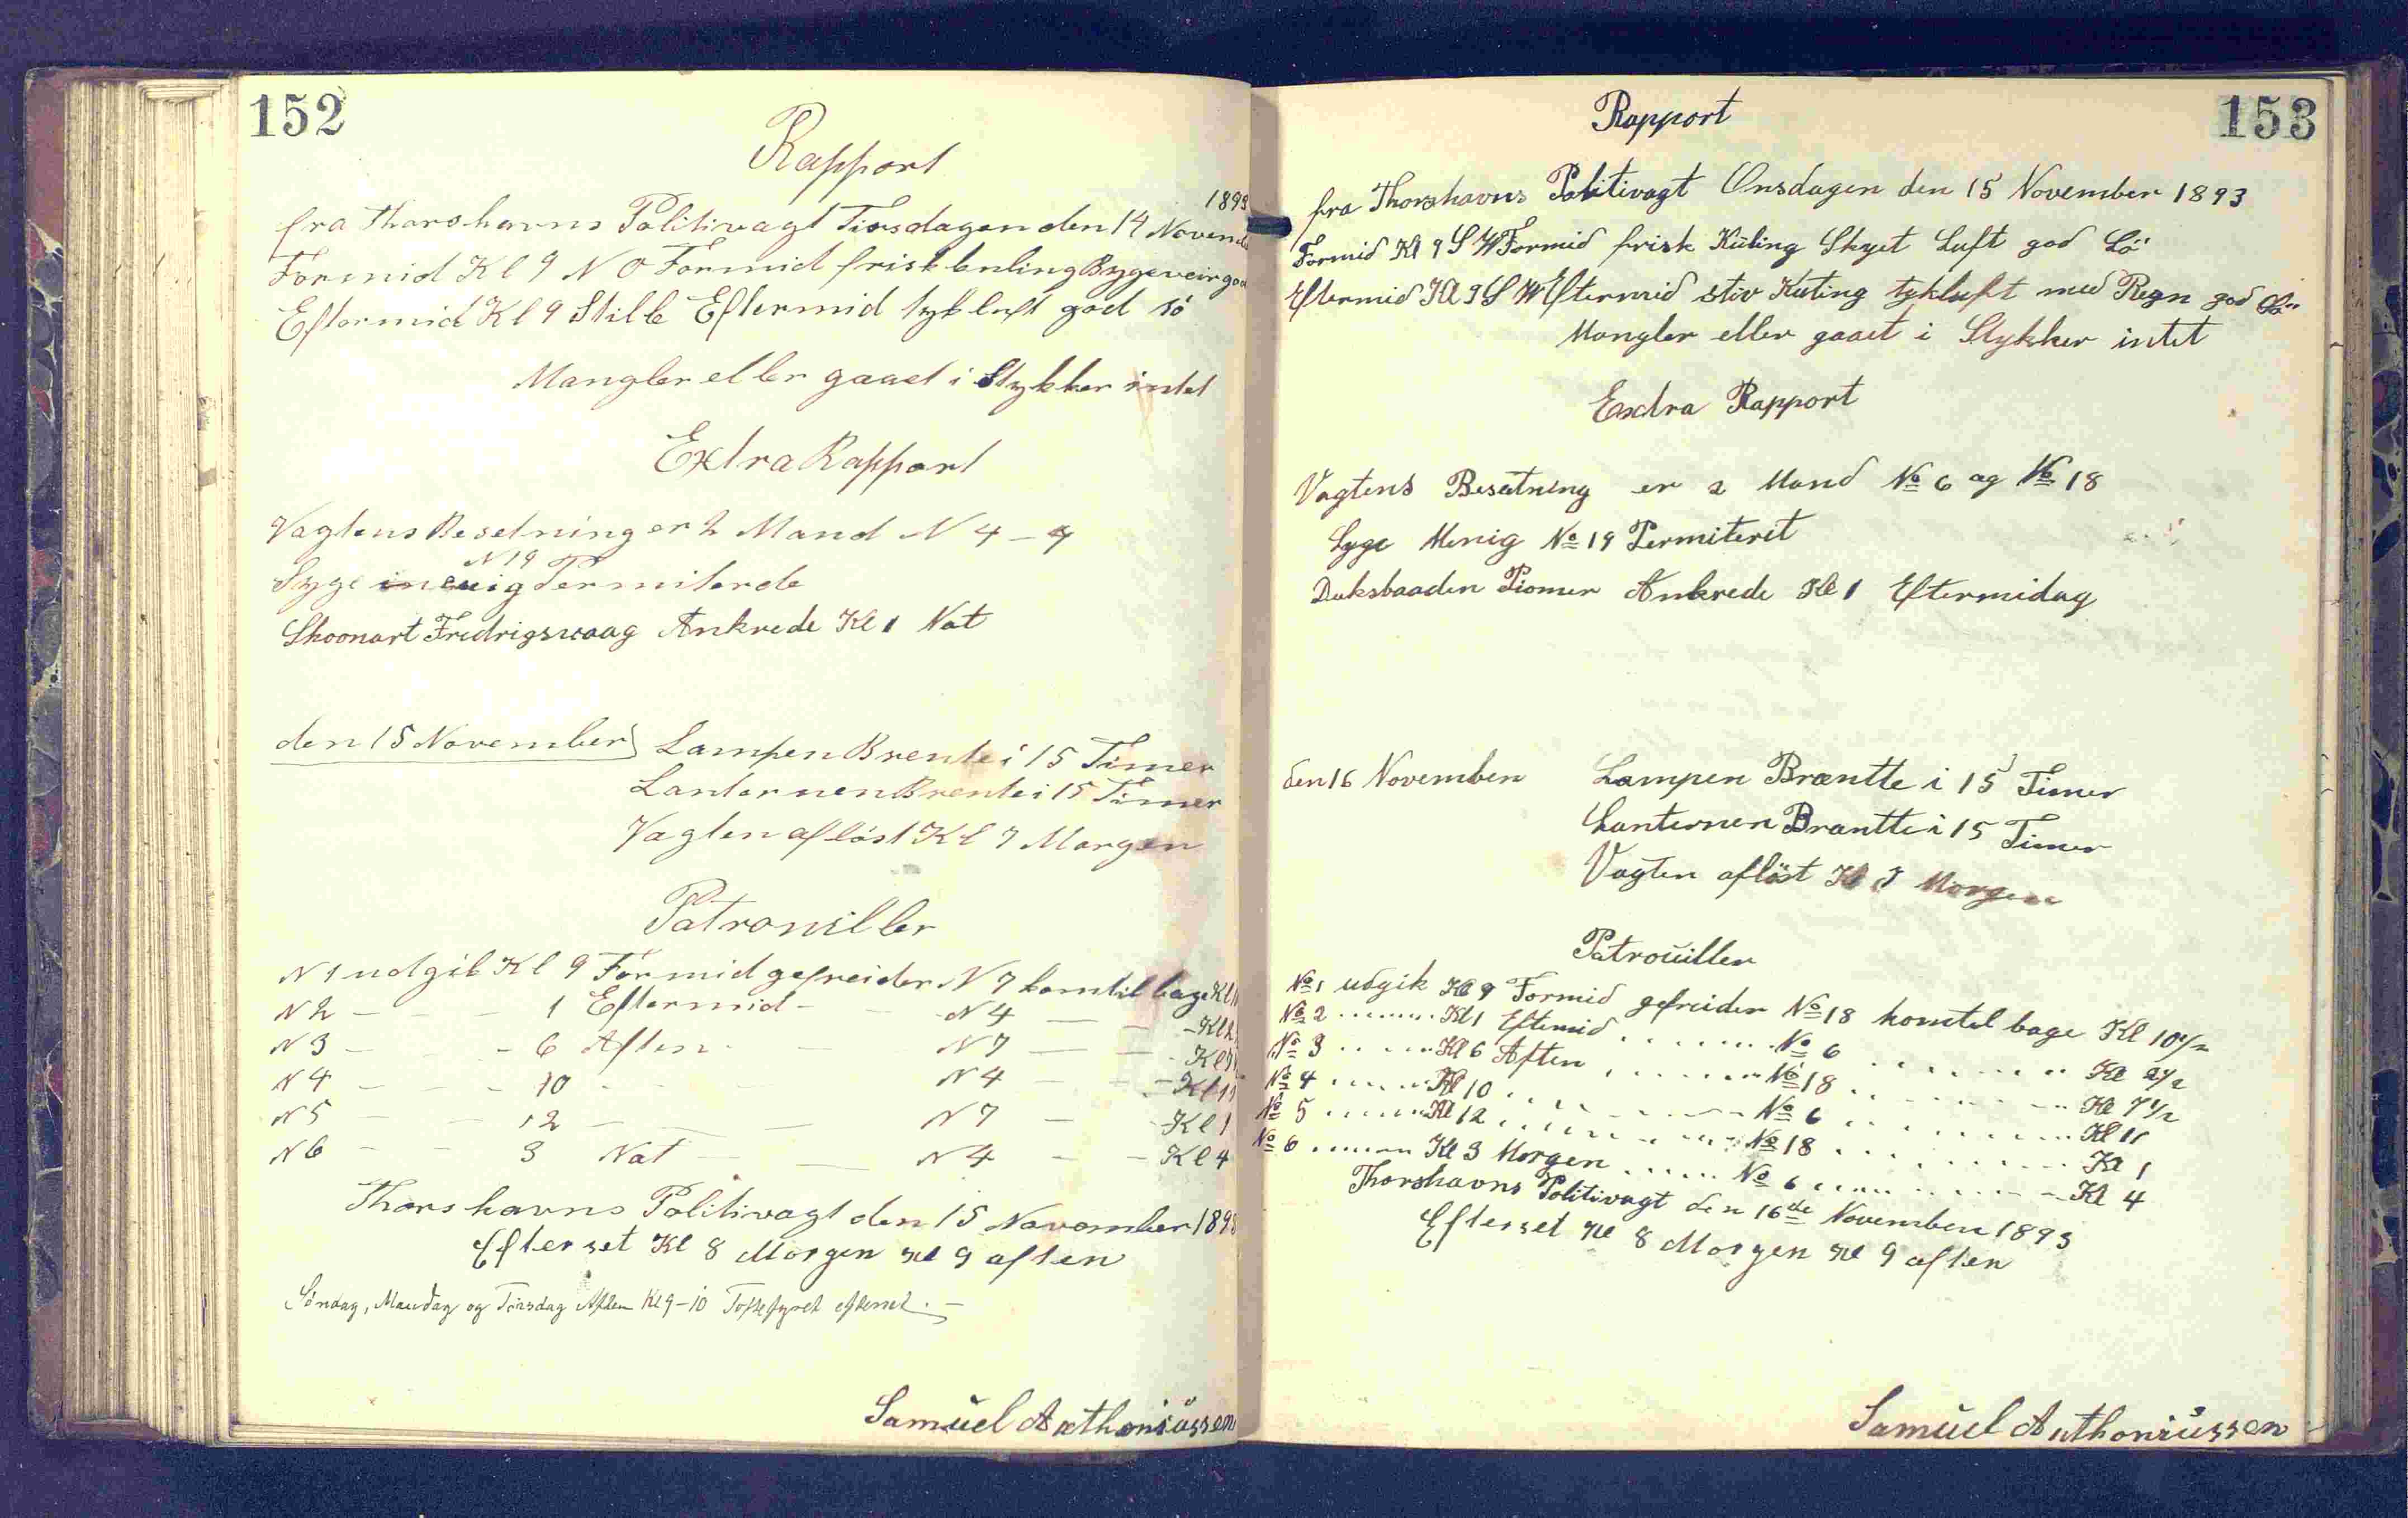 152
Rapport
1893
fra Thorshavns Politivagt Tirsdagen den 14 Novemb
Formid Kl 9 N O Formid frisk kuling Bygeveir god
Eftermid Kl 9 Stille Eftermid tyk luft god sö
Mangler eller gaaet i Stykker intet
Extra Rapport
Vagtens Besetning er 2 Mand N 4 - 7
N 19
Syge menig Permiterde
Skoonart Fredrigsvaag Ankrede Kl 1 Nat
den 15 November Lampen Brente i 15 Timer
Lanternen Brente i 15 Timer
Vagten aflöst Kl 7 Morgen
Patrouiller
N 1 udgik Kl 9 Formid gefreider N 7 kom til bage Kl
N 2 - - - 1 Eftermid - - N 4 - - Kl 2
N 3 - - - 6 Aften - - N 7 - - Kl
N 4 - - - 10 - - N 4 - - Kl 11
N 5 - - - 12 - - N 7 - - Kl 1
N 6 - - - 3 Nat - - N 4 - - Kl 4
Thorshavns Politivagt den 15 November 1893
Efterset Kl 8 Morgen Kl 9 aften
Söndag, Mandag og Tirsdag Aften Kl 9-10 Toftefyret efterset. -
Samüel Anthoniüssen
153
Rapport
fra Thorshavns Politivagt Onsdagen den 15 November 1893
Formid Kl 9 S W Formid frisk Küling Skyet Luft god Sö
Eftermid Kl 9 S W Eftermid stiv Kuling tykluft med Regn god Sö
Mangler eller gaaet i Stykker intet
Exdra Rapport
Vagtens Besætning er 2 Mand No 6 og No 18
Syge Menig No 19 Permiteret
Duksbaaden Pioner Ankrede Kl 1 Eftermidag
den 16 November Lampen Bræntte i 15 Timer
Lanternen Bræntte i 15 Timer
Vagten aflöst Kl 7 Morgen
Patroüiller
No 1 udgik Kl 9 Formid gefreider No 18 komtel bage Kl 10 1/2
No 2 ........ Kl 1 Eftemid ........ No 6 ........ Kl 2 1/2
No 3 ........ Kl 6 Aften ........ No 18 ........ Kl 7 1/2
No 4 ........ Kl 10 ........ No 6 ........ Kl 11
No 5 ........ Kl 12 ........ No 18 ........ Kl 1
No 6 ........ Kl 3 Morgen ........ No 6 ........ Kl 4
Thorshavns Politivagt den 16de November 1893
Efterset Kl 8 Morgen Kl 9 aften
Samüel Anthoniüssen